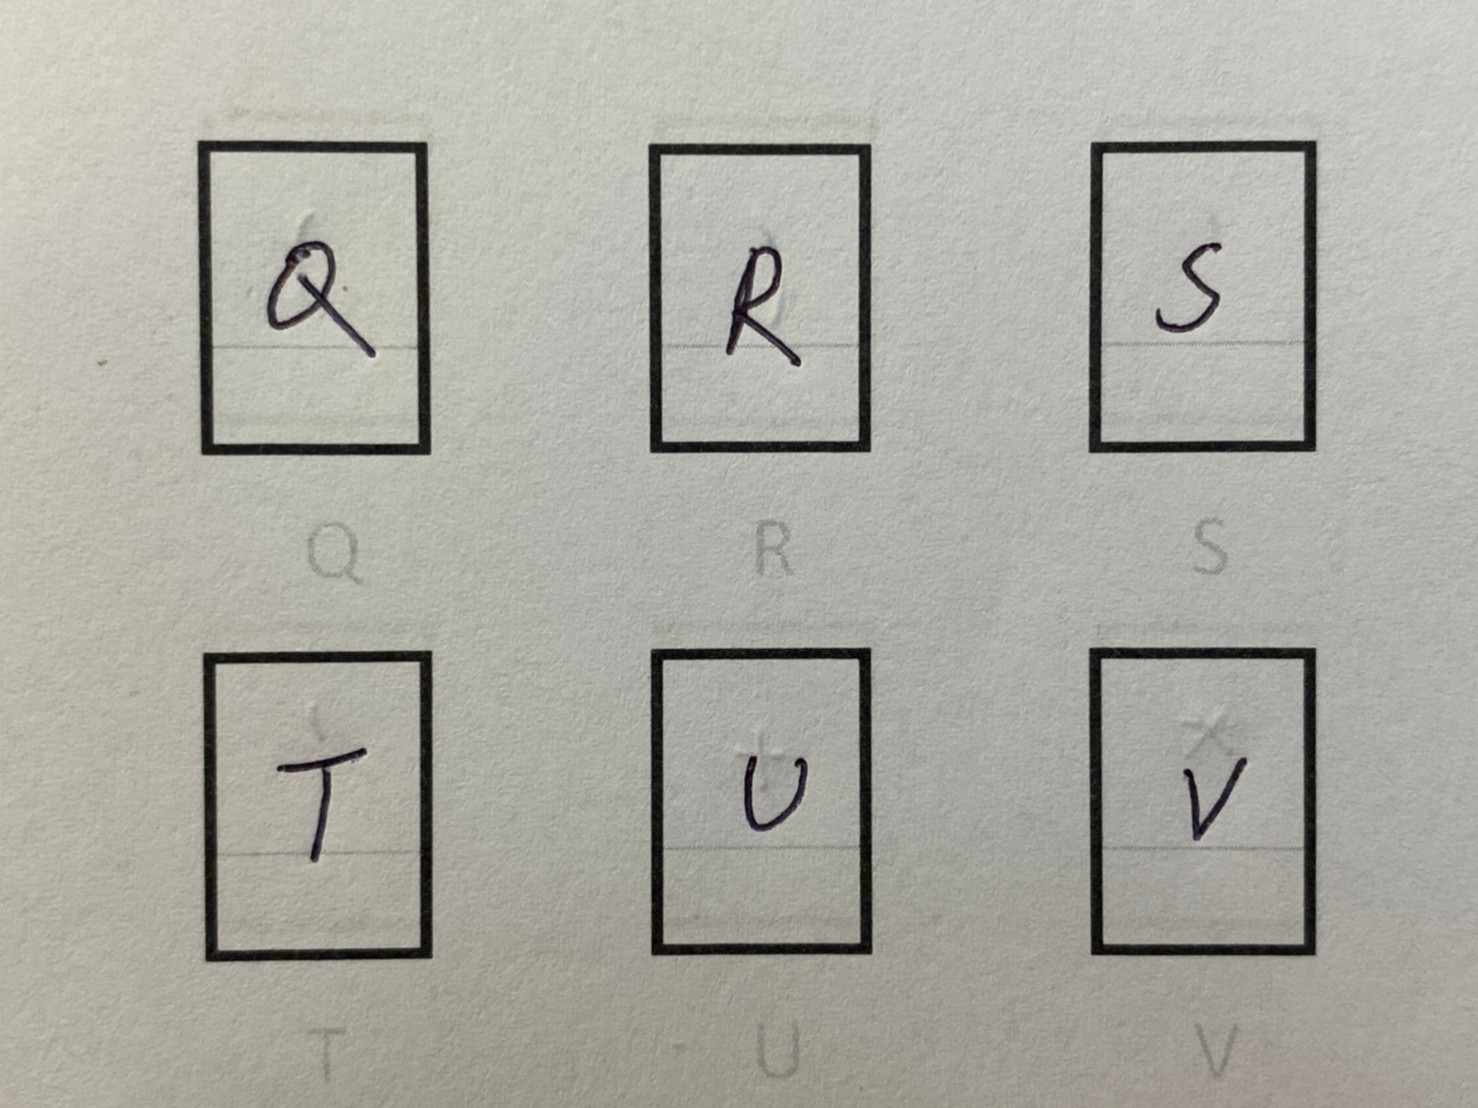 Q R S
Q R S
T U V
T U V